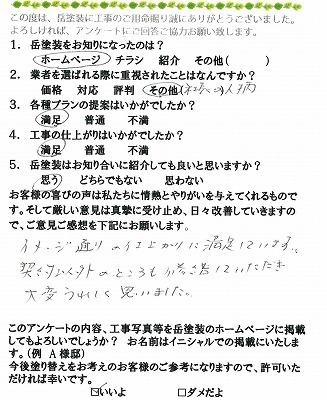 この度は、岳塗装に工事のご用命賜り誠にありがとうございました。
よろしければ、アンケートにご回答ご協力お願い致します。
1. 岳塗装をお知りになったのは?
ホームページ チラシ 紹介 その他( )
2. 業者を選ばれる際に重視されたことはなんですか?
価格 対応 評判 その他(社長の人柄)
3. 各種プランの提案はいかがでしたか?
満足 普通 不満
4. 工事の仕上がりはいかがでしたか?
満足 普通 不満
5. 岳塗装はお知り合いに紹介しても良いと思いますか?
思う どちらでもない 思わない
お客様の喜びの声は私たちに情熱とやりがいを与えてくれるものです。そして厳しい意見は真摯に受け止め、日々改善していきますので、ご意見ご感想を下記にお願いします。
イメージ通りの仕上がりに満足しています。
契約以外のところも修善していただき
大変うれしく思いました。
このアンケートの内容、工事写真等を岳塗装のホームページに掲載
してもよろしいでしょうか? お名前はイニシャルでの掲載にいたしま
す。(例 A 様邸)
今後塗り替えをお考えのお客様のご参考になりますので、許可いた
だければ幸いです。
☑いいよ □ダメだよ